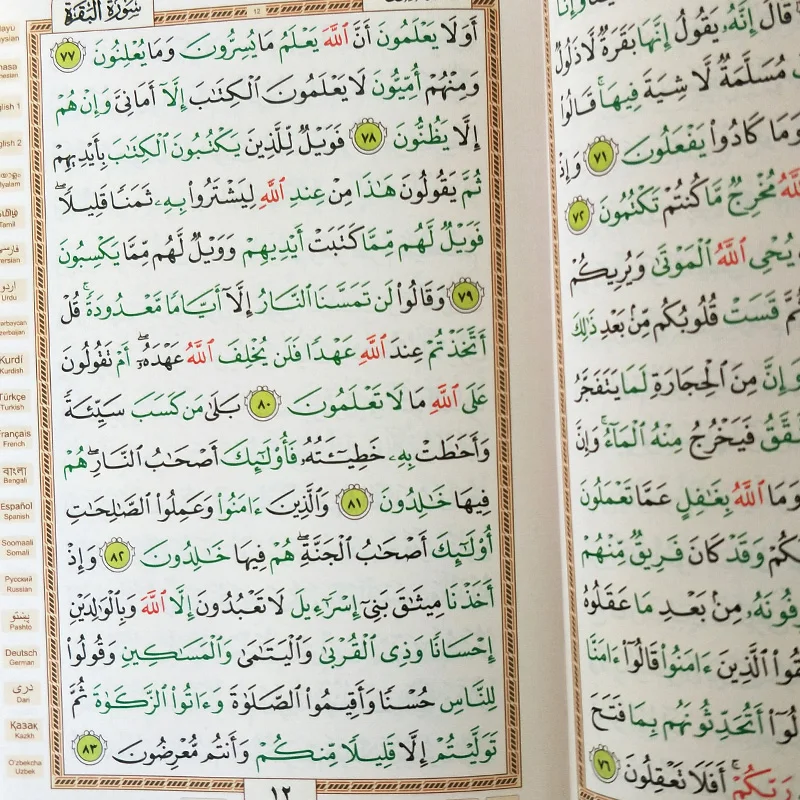 سُورَةُ البَقَرَةِ
12
أَوَلَا يَعْلَمُونَ أَنَّ ٱللَّهَ يَعْلَمُ مَا يُسِرُّونَ وَمَا يُعْلِنُونَ ٧٧
وَمِنْهُمْ أُمِّيُّونَ لَا يَعْلَمُونَ ٱلْكِتَٰبَ إِلَّآ أَمَانِىَّ وَإِنْ هُمْ
إِلَّا يَظُنُّونَ ٧٨ فَوَيْلٌ لِّلَّذِينَ يَكْتُبُونَ ٱلْكِتَٰبَ بِأَيْدِيهِمْ
ثُمَّ يَقُولُونَ هَٰذَا مِنْ عِندِ ٱللَّهِ لِيَشْتَرُوا۟ بِهِۦ ثَمَنًا قَلِيلًا ۖ
فَوَيْلٌ لَّهُم مِّمَّا كَتَبَتْ أَيْدِيهِمْ وَوَيْلٌ لَّهُم مِّمَّا يَكْسِبُونَ
٧٩ وَقَالُوا۟ لَن تَمَسَّنَا ٱلنَّارُ إِلَّآ أَيَّامًا مَّعْدُودَةً ۚ قُلْ
أَتَّخَذْتُمْ عِندَ ٱللَّهِ عَهْدًا فَلَن يُخْلِفَ ٱللَّهُ عَهْدَهُۥٓ ۖ أَمْ تَقُولُونَ
عَلَى ٱللَّهِ مَا لَا تَعْلَمُونَ ٨٠ بَلَىٰ مَن كَسَبَ سَيِّئَةً
وَأَحَٰطَتْ بِهِۦ خَطِيٓـَٔتُهُۥ فَأُو۟لَٰٓئِكَ أَصْحَٰبُ ٱلنَّارِ ۖ هُمْ
فِيهَا خَٰلِدُونَ ٨١ وَٱلَّذِينَ ءَامَنُوا۟ وَعَمِلُوا۟ ٱلصَّٰلِحَٰتِ
أُو۟لَٰٓئِكَ أَصْحَٰبُ ٱلْجَنَّةِ ۖ هُمْ فِيهَا خَٰلِدُونَ ٨٢ وَإِذْ
أَخَذْنَا مِيثَٰقَ بَنِىٓ إِسْرَٰٓءِيلَ لَا تَعْبُدُونَ إِلَّا ٱللَّهَ وَبِٱلْوَٰلِدَيْنِ
إِحْسَانًا وَذِى ٱلْقُرْبَىٰ وَٱلْيَتَٰمَىٰ وَٱلْمَسَٰكِينِ وَقُولُوا۟
لِلنَّاسِ حُسْنًا وَأَقِيمُوا۟ ٱلصَّلَوٰةَ وَءَاتُوا۟ ٱلزَّكَوٰةَ ثُمَّ
تَوَلَّيْتُمْ إِلَّا قَلِيلًا مِّنكُمْ وَأَنتُم مُّعْرِضُونَ ٨٣
١٢
قَالَ إِنَّهُۥ يَقُولُ إِنَّهَا بَقَرَةٌ لَّا ذَلُولٌ
مُسَلَّمَةٌ لَّا شِيَةَ فِيهَا ۚ قَالُوا۟
وَمَا كَادُوا۟ يَفْعَلُونَ ٧١ وَإِذْ
مُخْرِجٌ مَّا كُنتُمْ تَكْتُمُونَ ٧٢
يُحْىِ ٱللَّهُ ٱلْمَوْتَىٰ وَيُرِيكُمْ
قَسَتْ قُلُوبُكُم مِّنۢ بَعْدِ ذَٰلِكَ
وَإِنَّ مِنَ ٱلْحِجَارَةِ لَمَا يَتَفَجَّرُ
فَيَخْرُجُ مِنْهُ ٱلْمَآءُ ۚ وَإِنَّ
وَمَا ٱللَّهُ بِغَٰفِلٍ عَمَّا تَعْمَلُونَ
وَقَدْ كَانَ فَرِيقٌ مِّنْهُمْ
مِنۢ بَعْدِ مَا عَقَلُوهُ
ٱلَّذِينَ ءَامَنُوا۟ قَالُوٓا۟ ءَامَنَّا
أَتُحَدِّثُونَهُم بِمَا فَتَحَ
رَبِّكُمْ ۚ أَفَلَا تَعْقِلُونَ ٧٦
English 1
English 2
Malayalam
தமிழ்
Tamil
فارسی
Persian
اردو
Urdu
Azerbaijan
Kurdî
Kurdish
Türkçe
Turkish
Français
French
বাংলা
Bengali
Español
Spanish
Soomaali
Somali
Русский
Russian
پښتو
Pashto
Deutsch
German
دری
Dari
Қазақ
Kazkh
O'zbekcha
Uzbek